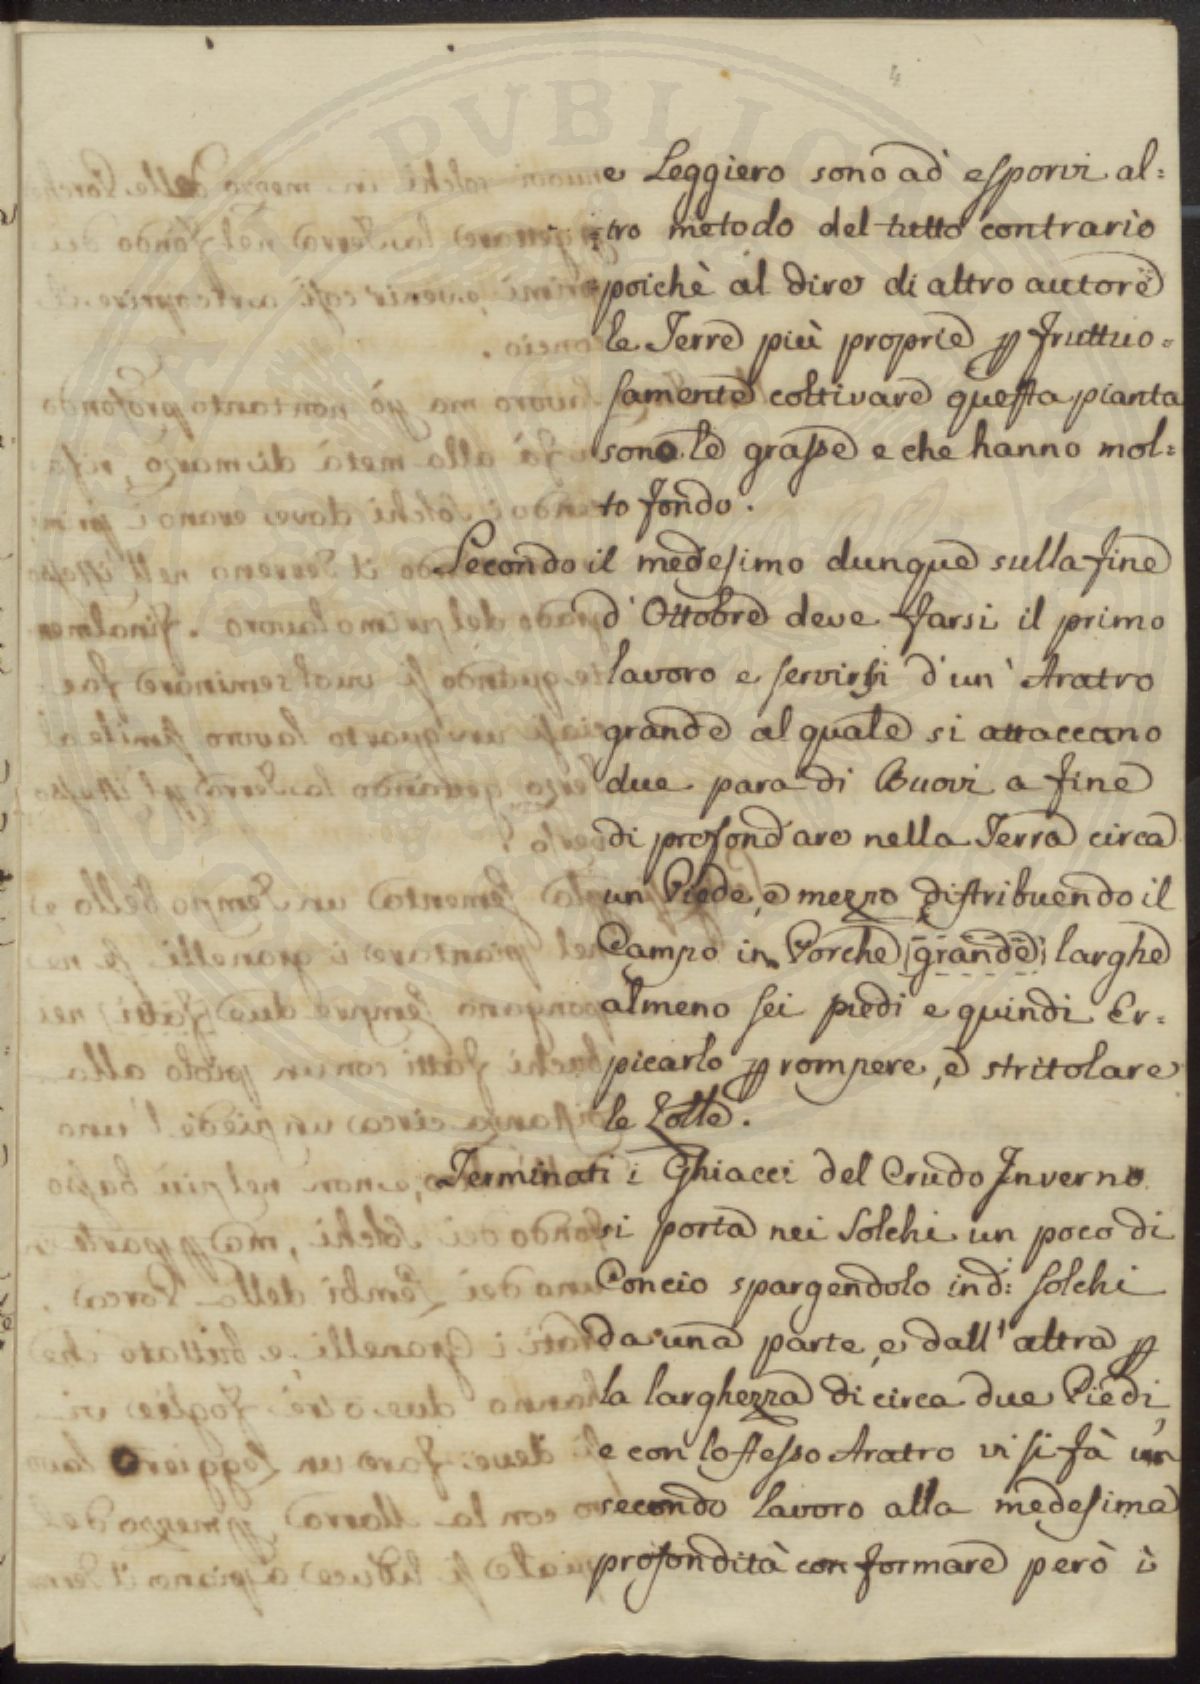 4
e Leggiero sono ad esporvi al=
tro metodo del tutto contrario
poichè al dire di altro autore
le Terre più proprie ꝑ fruttuo=
samente coltivare questa pianta
sono le grasse e che hanno mol=
to fondo.
Secondo il medesimo dunque sulla fine
d'Ottobre deve farsi il primo
lavoro e servirsi d'un' Aratro
grande al quale si attaccano
due para di Buovi a fine
di profondare nella Terra circa
un Piede, e mezzo distribuendo il
Campo in Porche grande larghe
almeno sei piedi e quindi Er=
picarlo ꝑ rompere, e stritolare
le Zolle.
Terminati i Ghiacci del Crudo Inverno
si porta nei Solchi un poco di
Concio spargendolo in d.i: solchi
da una parte, e dall'altra ꝑ
la larghezza di circa due Piedi,
e con lo stesso Aratro vi si fà un
secondo lavoro alla medesima
profondità con formare però i